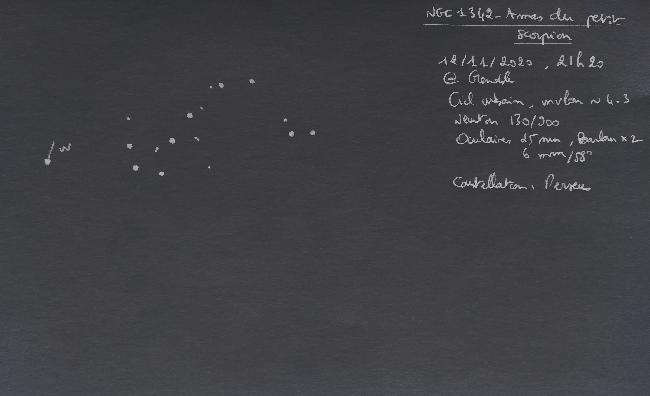 NGC 1342 - Amas du petit
scorpion
12/11/2020, 21h20
@ Grenoble
Ciel urbain, mvlon ~ 4.3
Newton 130/900
Oculaires 25 mm, Barlow x2
6 mm/58°
Constellation, Persée
W